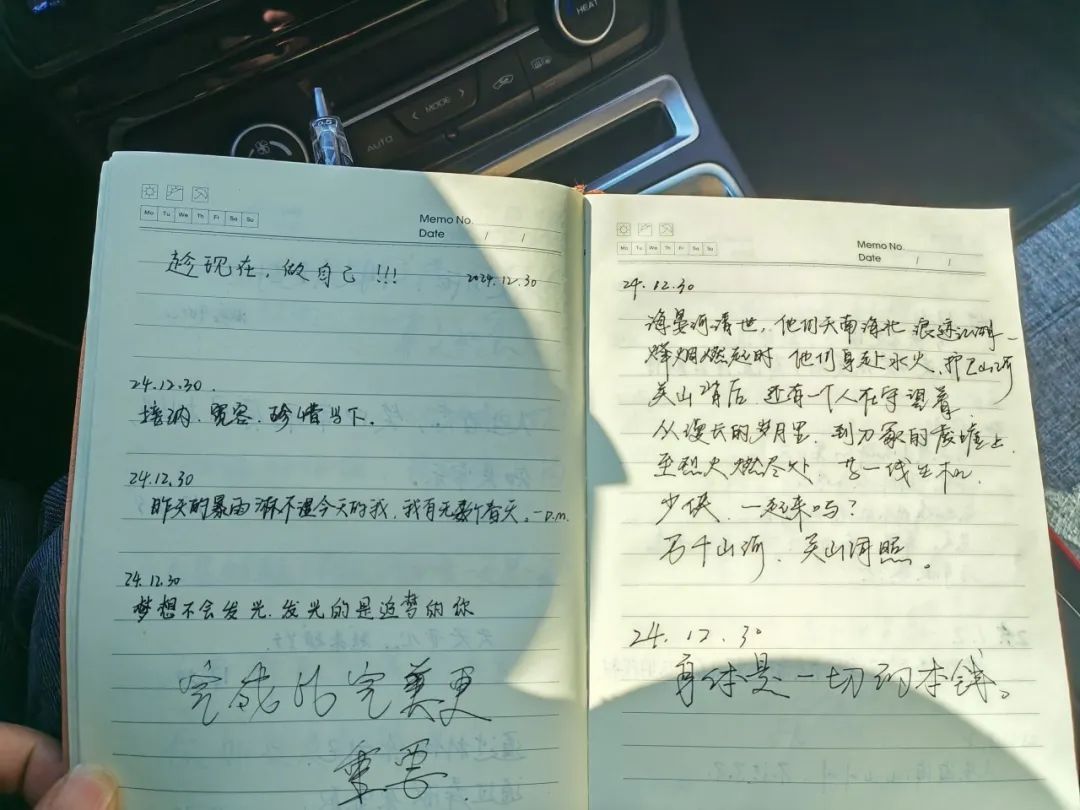 HEAT
MODE
AUTO
0.5
Mo Tu We Th Fr Sa Su
Memo No.
Date / /
趁现在，做自己!!!
2024.12.30
24.12.30.
接纳、宽容、珍惜当下。
24.12.30
昨天的暴雨淋不湿今天的我，我有无数个春天。—D.M.
24.12.30
梦想不会发光，发光的是追梦的你
完成比完美更
重要
Mo Tu We Th Fr Sa Su
Memo No.
Date / /
24.12.30
海晏河清世，他们天南海北 浪迹江湖
烽烟燃起时 他们身赴水火、护卫山河
关山背后 还有一个人在守望着
从漫长的岁月里、到刀冢的废墟上
至烈火燃尽处、一线生机
少侠、一起来吗？
万千山河、关山同照。
24.12.30
身体是一切的本钱。